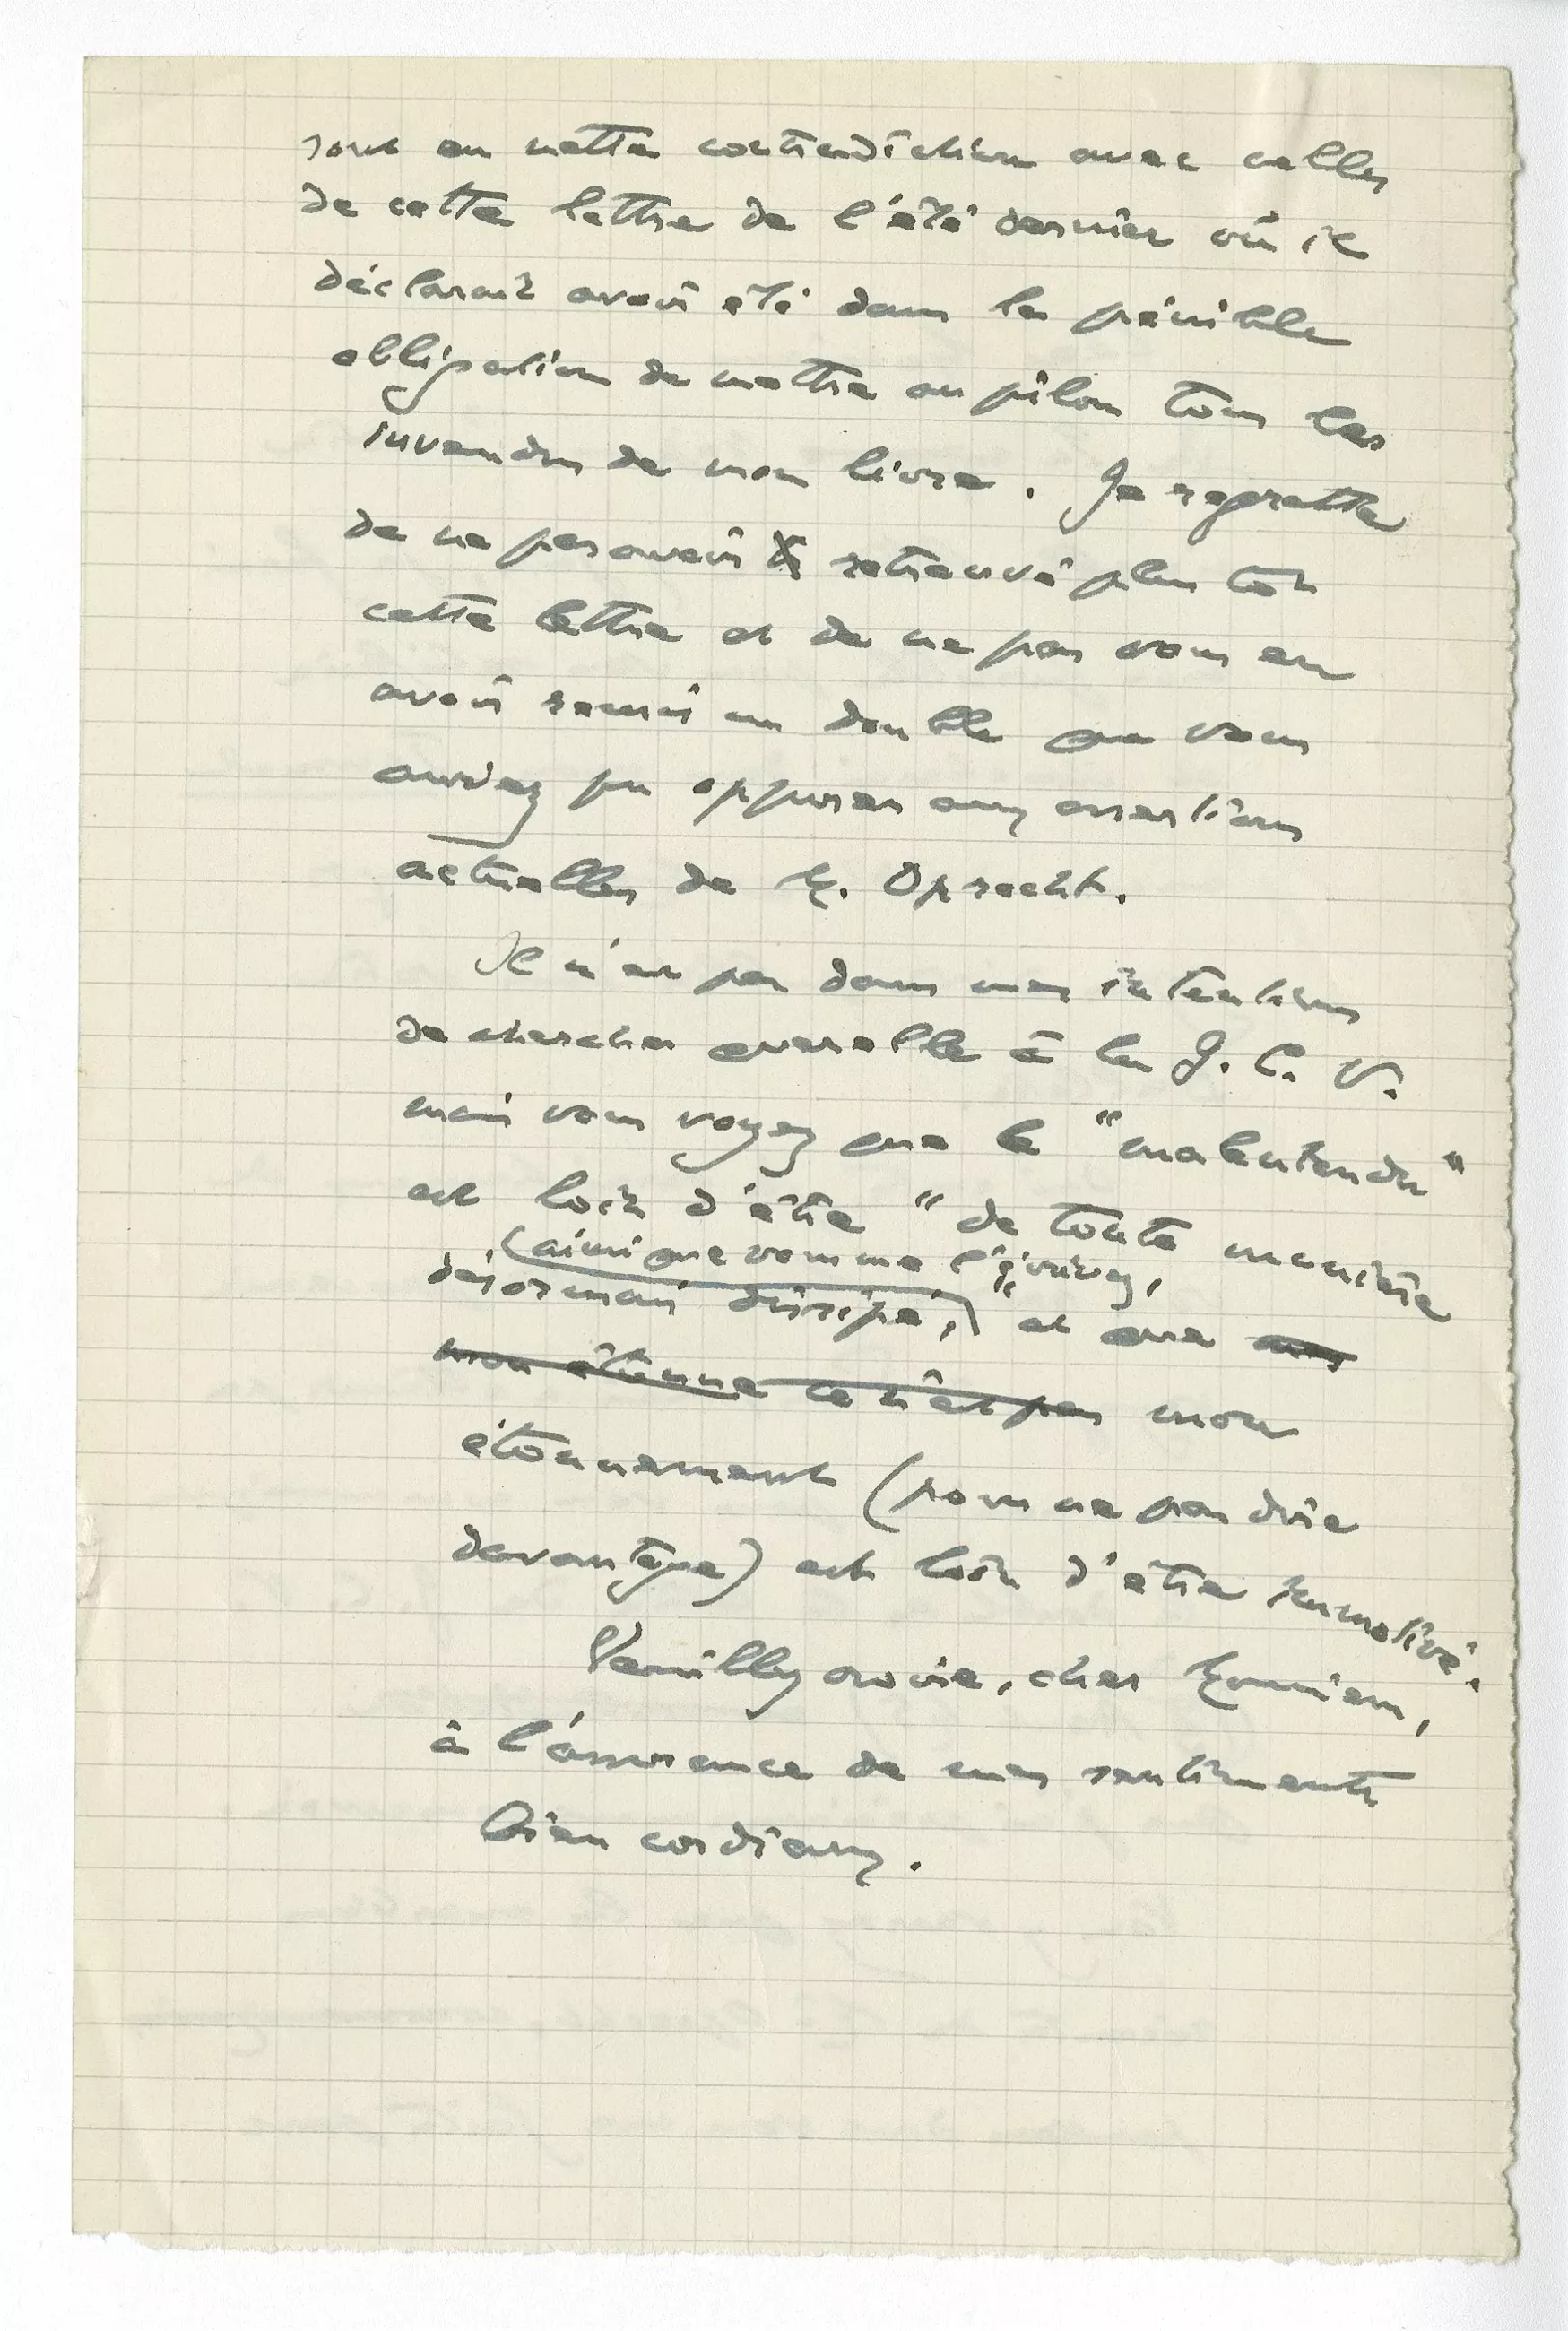 sont en nette contradiction avec celles
de cette lettre de l'été dernier où il
déclarait avoir été dans la pénible
obligation de mettre au pilon tous les
invendus de mon livre. Je regrette
de ne pas avoir retrouvé plus tôt
cette lettre et de ne pas vous en
avoir remis un double que vous
auriez pu opposer aux assertions
actuelles de M. Oprecht.
Il n'est pas dans mes intentions
de chercher querelle à la
mais vous voyez que le "malentendu"
est loin d'être "de toute manière
(ainsi que vous me l'écrivez,
désormais dissipé," et que mes
mon étonne ce n'est pas mon
étonnement (pour ne pas dire
davantage) est loin d'être immotivé.
Veuillez croire, cher Monsieur,
à l'assurance de mes sentiments
bien cordiaux.